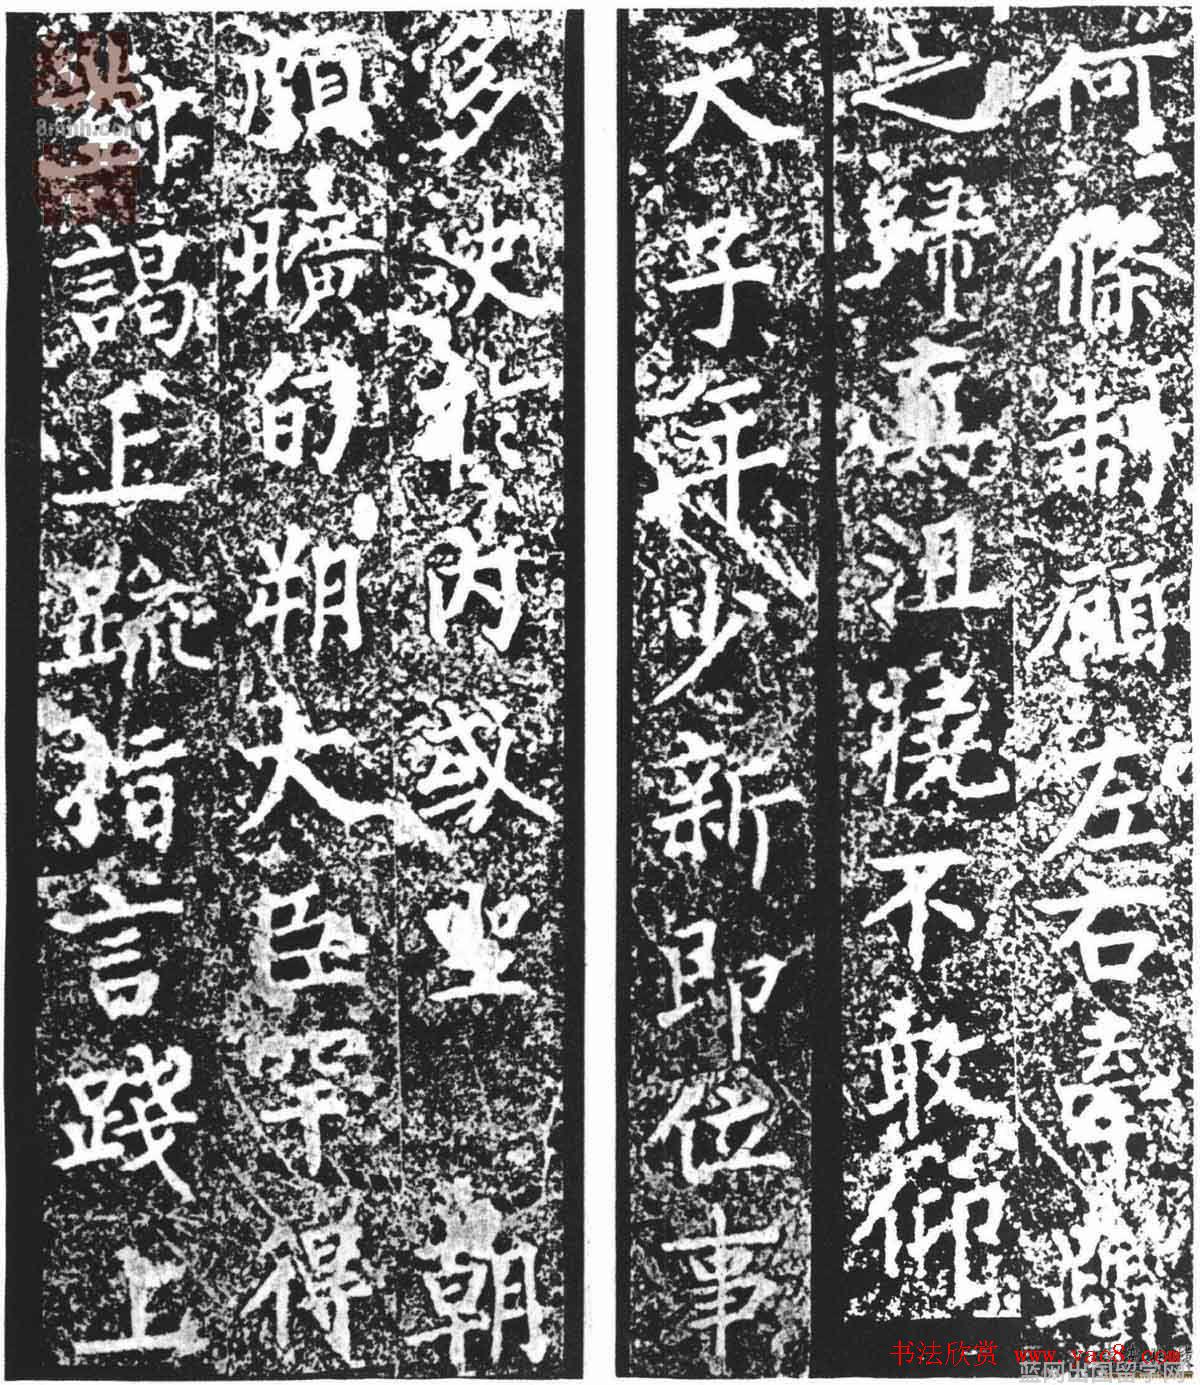 何條制顧左右
之歸真沮橈不敢仰
天子年少新即位事
多決於內或朝
頗曠旬朔大臣罕得
謁上疏指言踐上
书法欣赏 www.yac8.com